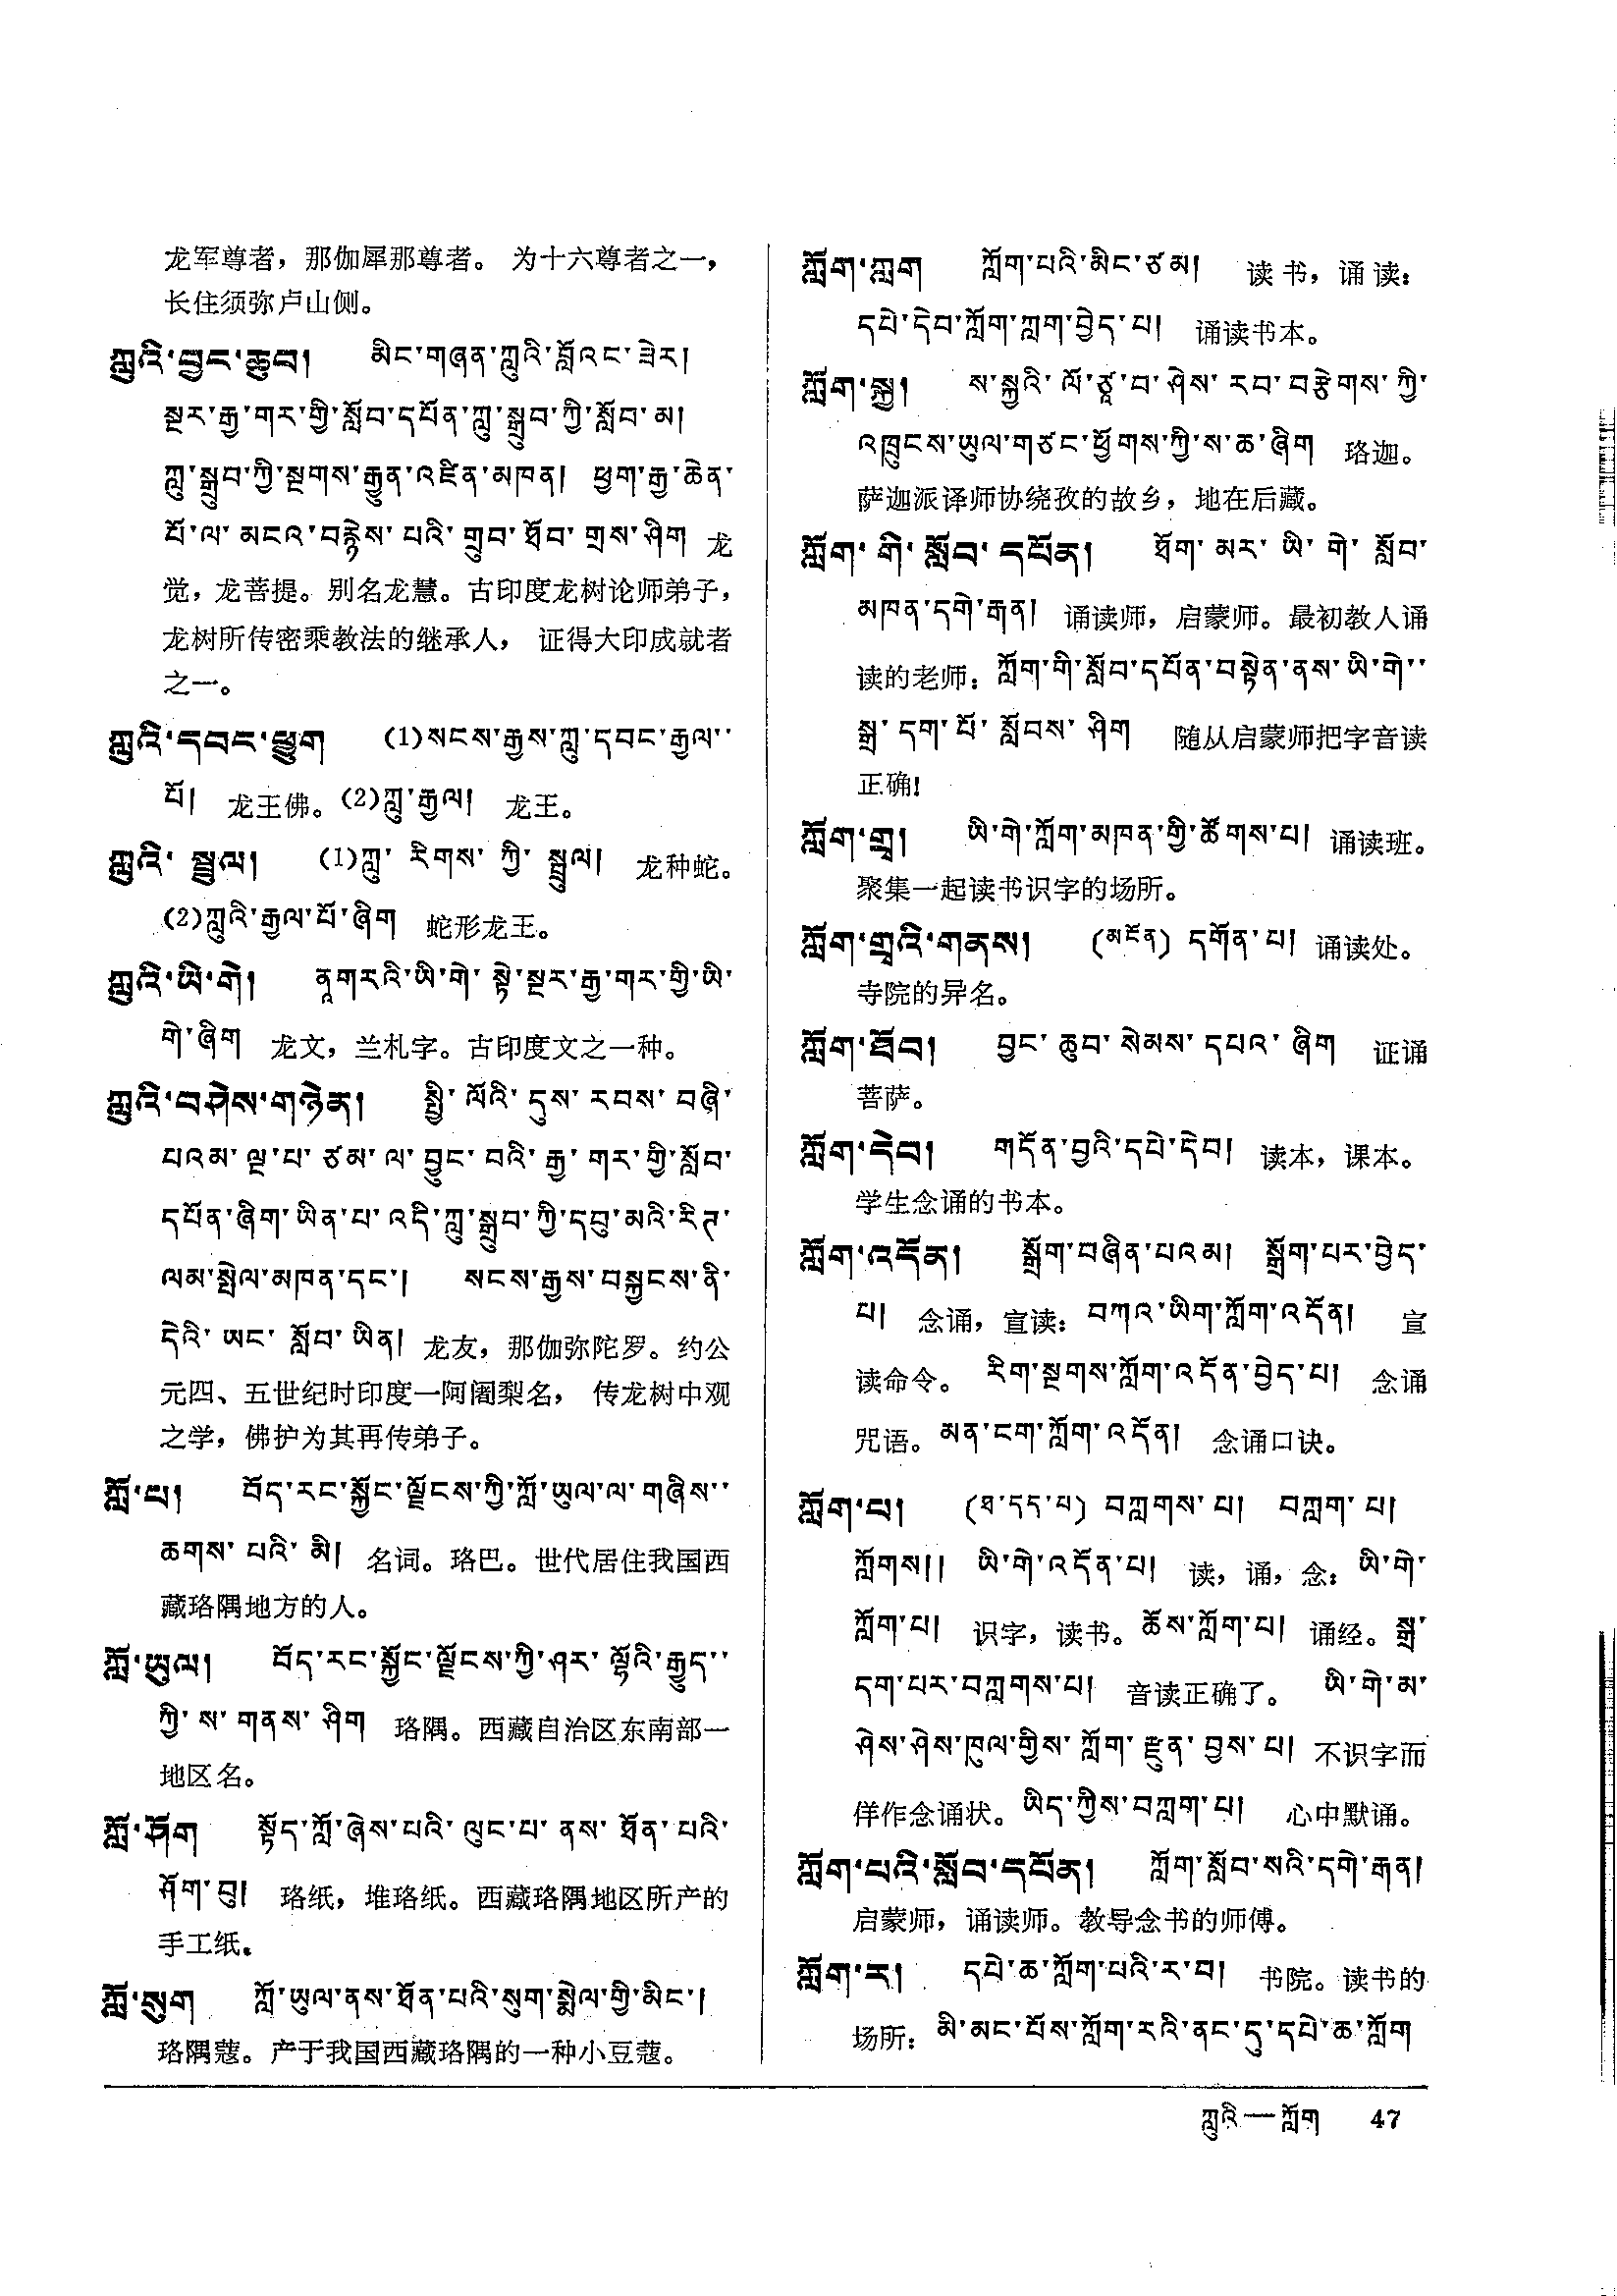 龙军尊者，那伽犀那尊者。 为十六尊者之一，
长住须弥卢山侧。
ཀླུའི་བྱང་ཆུབ། མིང་གཞན་ཀླུའི་བློའང་ཟེར།
སྔར་རྒྱ་གར་གྱི་སློབ་དཔོན་ཀླུ་སྒྲུབ་ཀྱི་སློབ་མ།
ཀླུ་སྒྲུབ་ཀྱི་སྔགས་རྒྱུན་འཛིན་མཁན། ཕྱག་རྒྱ་ཆེན་
པོ་ལ་མངའ་བརྙེས་པའི་གྲུབ་ཐོབ་གྲས་ཤིག 龙
觉，龙菩提。别名龙慧。古印度龙树论师弟子，
龙树所传密乘教法的继承人， 证得大印成就者
之一。
ཀླུའི་དབང་ཕྱུག (1)སངས་རྒྱས་ཀླུ་དབང་རྒྱལ་་
པོ། 龙王佛。(2)ཀླུ་རྒྱལ། 龙王。
ཀླུའི་སྦྲུལ། (1)ཀླུ་རིགས་ཀྱི་སྦྲུལ། 龙种蛇。
(2)ཀླུའི་རྒྱལ་པོ་ཞིག 蛇形龙王。
ཀླུའི་ཡི་གེ། ནཱགརའི་ཡི་གེ་སྟེ་སྔར་རྒྱ་གར་གྱི་ཡི་
གེ་ཞིག 龙文，兰札字。古印度文之一种。
ཀླུའི་བཤེས་གཉེན། སྤྱི་ལོའི་དུས་རབས་བཞི་
པའམ་ལྔ་པ་ཙམ་ལ་བྱུང་བའི་རྒྱ་གར་གྱི་སློབ་
དཔོན་ཞིག་ཡིན་པ་འདི་ཀླུ་སྒྲུབ་ཀྱི་དབུ་མའི་རིཊ་
ལམ་སྤེལ་མཁན་དང་། སངས་རྒྱས་བསྐྱངས་ནི་
དེའི་ཡང་སློབ་ཡིན། 龙友，那伽弥陀罗。约公
元四、五世纪时印度一阿阇梨名， 传龙树中观
之学，佛护为其再传弟子。
ཀློ་པ། བོད་རང་སྐྱོང་ལྗོངས་ཀྱི་ཀློ་ཡུལ་ལ་གཞིས་་
ཆགས་པའི་མི། 名词。珞巴。世代居住我国西
藏珞隅地方的人。
ཀློ་ཡུལ། བོད་རང་སྐྱོང་ལྗོངས་ཀྱི་ཤར་ལྷོའི་རྒྱུད་་
ཀྱི་ས་གནས་ཤིག 珞隅。西藏自治区东南部一
地区名。
ཀློ་ཤོག སྟོད་ཀློ་ཞེས་པའི་ལུང་པ་ནས་ཐོན་པའི་
ཤོག་བུ། 珞纸，堆珞纸。西藏珞隅地区所产的
手工纸。
ཀློ་སུག ཀློ་ཡུལ་ནས་ཐོན་པའི་སུག་སྨེལ་གྱི་མིང་།
珞隅蔻。产于我国西藏珞隅的一种小豆蔻。
ཀློག་ཀླག ཀློག་པའི་མིང་ཙམ། 读书，诵读：
དཔེ་དེབ་ཀློག་ཀླག་བྱེད་པ། 诵读书本。
ཀློག་སྐྱ། ས་སྐྱའི་ལོ་ཙཱ་བ་ཤེས་རབ་བརྩེགས་ཀྱི་
འཁྲུངས་ཡུལ་གཙང་ཕྱོགས་ཀྱི་ས་ཆ་ཞིག 珞迦。
萨迦派译师协绕孜的故乡，地在后藏。
ཀློག་གི་སློབ་དཔོན། ཐོག་མར་ཡི་གེ་སློབ་
མཁན་དགེ་རྒན། 诵读师，启蒙师。最初教人诵
读的老师：ཀློག་གི་སློབ་དཔོན་བསྟེན་ནས་ཡི་གེ་་
སྒྲ་དག་པོ་སློབས་ཤིག 随从启蒙师把字音读
正确！
ཀློག་གྲྭ། ཡི་གེ་ཀློག་མཁན་གྱི་ཚོགས་པ། 诵读班。
聚集一起读书识字的场所。
ཀློག་གྲྭའི་གནས། (མངོན) དགོན་པ། 诵读处。
寺院的异名。
ཀློག་ཐོབ། བྱང་ཆུབ་སེམས་དཔའ་ཞིག 证诵
菩萨。
ཀློག་དེབ། གདོན་བྱའི་དཔེ་དེབ། 读本，课本。
学生念诵的书本。
ཀློག་འདོན། སྒྲོག་བཞིན་པའམ། སྒྲོག་པར་བྱེད་
པ། 念诵，宣读：བཀའ་ཡིག་ཀློག་འདོན། 宣
读命令。 རིག་སྔགས་ཀློག་འདོན་བྱེད་པ། 念诵
咒语。མན་ངག་ཀློག་འདོན། 念诵口诀。
ཀློག་པ། (ཐ་དད་པ) བཀླགས་པ། བཀླག་པ།
ཀློགས།། ཡི་གེ་འདོན་པ། 读，诵，念：ཡི་གེ་
ཀློག་པ། 识字，读书。ཆོས་ཀློག་པ། 诵经。སྒྲ་
དག་པར་བཀླགས་པ། 音读正确了。 ཡི་གེ་མ་
ཤེས་ཤེས་ཁུལ་གྱིས་ཀློག་རྫུན་བྱས་པ། 不识字而
佯作念诵状。ཡིད་ཀྱིས་བཀླག་པ། 心中默诵。
ཀློག་པའི་སློབ་དཔོན། ཀློག་སློབ་སའི་དགེ་རྒན།
启蒙师，诵读师。教导念书的师傅。
ཀློག་ར། དཔེ་ཆ་ཀློག་པའི་ར་བ། 书院。读书的
场所：མི་མང་པོས་ཀློག་རའི་ནང་དུ་དཔེ་ཆ་ཀློག
ཀླུའི—ཀློག 47